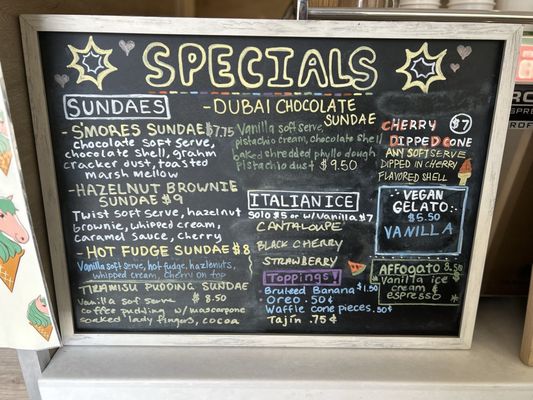 SPECIALS
SUNDAES
-S'MORES SUNDAE $7.75
chocolate soft serve,
chocolate shell, graham
cracker dust, toasted
marsh mellow
-HAZELNUT BROWNIE
SUNDAE $9
Twist soft serve, hazelnut
brownie, whipped cream,
caramel sauce, cherry
-HOT FUDGE SUNDAE $8
Vanilla soft serve, hot fudge, hazlenuts,
whipped cream, cherri on top
TIRAMISU PUDDING SUNDAE
Vanilla soft serve $8.50
coffee pudding w/mascarpone
soaked lady fingers, cocoa
-DUBAI CHOCOLATE
SUNDAE
Vanilla soft serve,
pistachio cream, chocolate shell
baked shredded phyllo dough
Pistachio dust $9.50
ITALIAN ICE
Solo $5 or w/Vanilla $7
CANTALOUPE
BLACK CHERRY
STRAWBERRY
Toppings!
Bruleed Banana $1.50
Oreo .50¢
Waffle cone pieces .50¢
Tajin .75¢
CHERRY $7
DIPPED CONE
ANY SOFT SERVE
DIPPED IN CHERRY
FLAVORED SHELL
VEGAN
GELATO:
$5.50
VANILLA
AFFOGATO 8.50
Vanilla ice
cream &
espresso